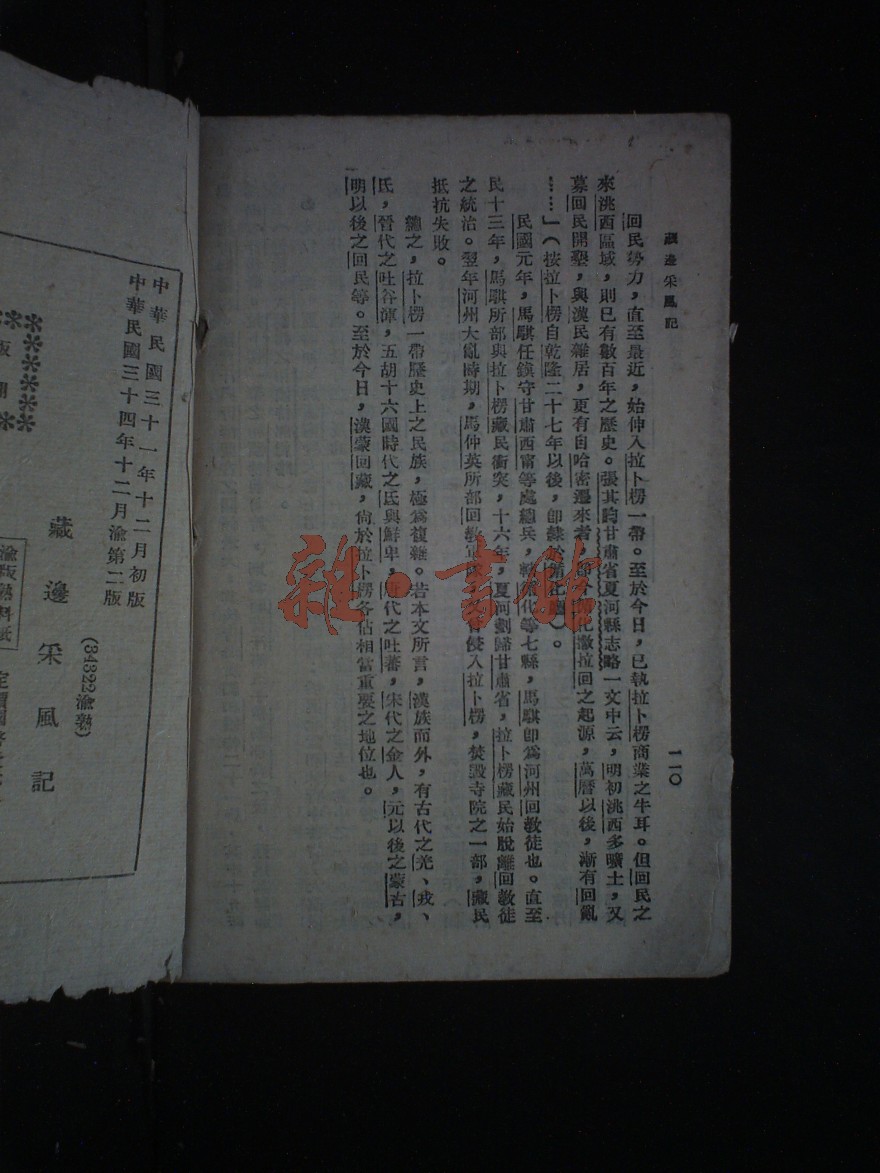 藏邊采風記
一一〇
回民勢力，直至最近，始伸入拉卜楞一帶。至於今日，已執拉卜楞商業之牛耳。但回民之
來洮西區域，則已有數百年之歷史。張其昀甘肅省夏河縣志略一文中云，明初洮西多曠土，又
募回民開墾，與漢民雜居，更有自哈密遷來者，撒拉回之起源，萬曆以後，漸有回亂
……」（按拉卜楞自乾隆二十七年以後，卽隸於循化廳）。
民國元年，馬騏任鎮守甘肅西甯等處總兵，轄循代等七縣，馬騏卽爲河州回教徒也。直至
民十三年，馬騏所部與拉卜楞藏民衝突，十六年，夏河劃歸甘肅省，拉卜楞藏民始脫離回教徒
之統治。翌年河州大亂時期，馬仲英所部回教軍侵入拉卜楞，焚毀寺院之一部，藏民
抵抗失敗。
總之，拉卜楞一帶歷史上之民族，極爲複雜。若本文所言，漢族而外，有古代之羌、戎、
氐，晉代之吐谷渾，五胡十六國時代之氐與鮮卑，唐代之吐蕃，宋代之金人，元以後之蒙古，
明以後之回民等。至於今日，漢蒙回藏，尙於拉卜楞各佔相當重要之地位也。
雜·書館
中華民國三十一年十二月初版
中華民國三十四年十二月渝第二版
(34322渝熟)
藏邊采風記
渝版熟料紙